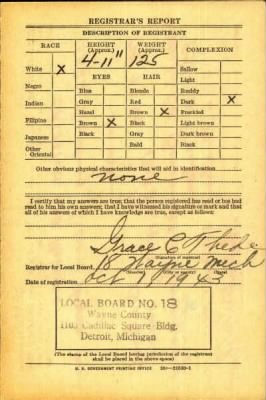 REGISTRAR'S REPORT
DESCRIPTION OF REGISTRANT
RACE HEIGHT (Approx.) WEIGHT (Approx.) COMPLEXION
4-11" 125
White X
EYES HAIR
Sallow
Light
Negro Blue Blonde Ruddy
Indian Gray Red Dark X
Hazel Brown X Freckled
Filipino Brown X Black Light brown
Japanese Black Gray Dark brown
Other Oriental Bald Black
Other obvious physical characteristics that will aid in identification
none
I certify that my answers are true; that the person registered has read or has had
read to him his own answers; that I have witnessed his signature or mark and that
all of his answers of which I have knowledge are true, except as follows:
Grace C.
(Signature of registrar)
Registrar for Local Board 18 Wayne Mich
Date of registration Oct 19 1943
LOCAL BOARD NO. 18
Wayne County
1103 Cadillac Square Bldg.
Detroit, Michigan
(The stamp of the Local Board having jurisdiction of the registrant
shall be placed in the above space)
U. S. GOVERNMENT PRINTING OFFICE 16—21630-1